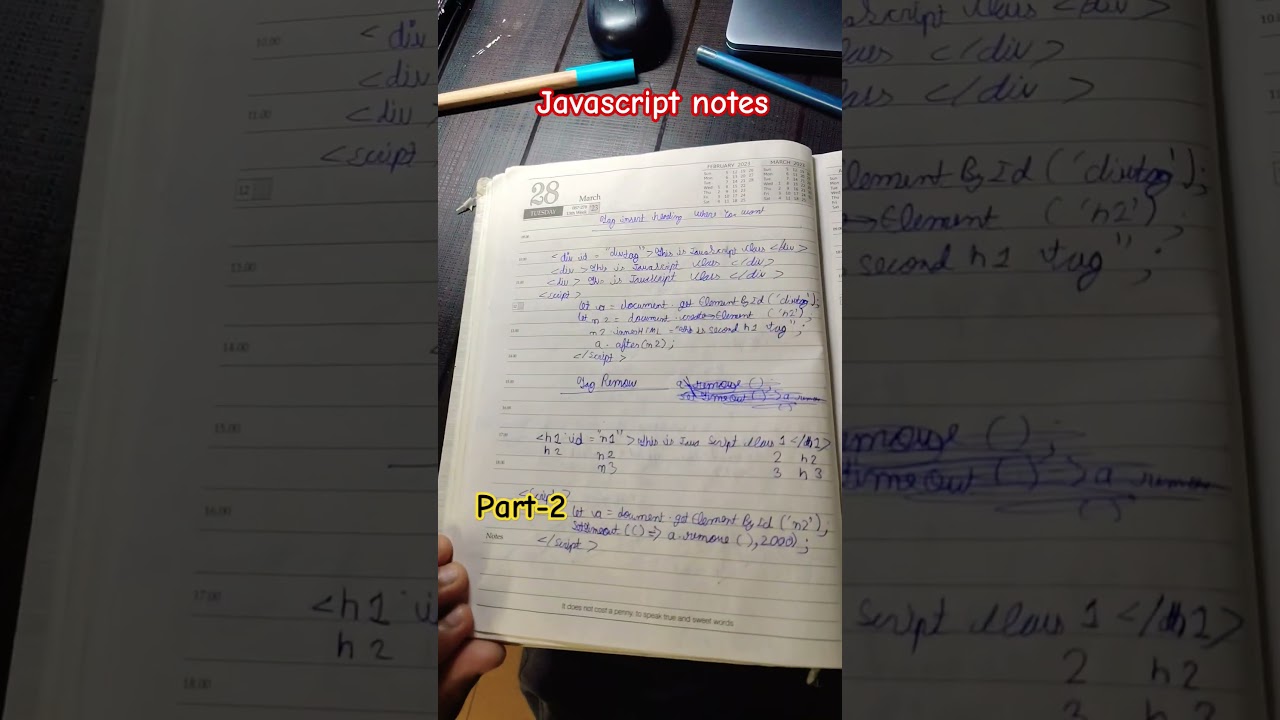 Javascript notes
FEBRUARY 2023
MARCH 2023
28
March
TUESDAY
Tag insert heading where You want
<div id = "divtag" > This is JavaScript Class </div>
<div > This is JavaScript Class </div>
<div> This is JavaScript Class </div>
<script>
let a = document.getElementById('divtag');
let n2 = document.createElement ('h2');
n2.innerHTML = "this is second h1 tag";
a.after(n2);
</script>
Tag Remove
a.remove();
set timeout () > a remove
()
<h1 id = "n1" > This is Java Script Class 1 </h1>
h2 n2 2 h2
n3 3 h3
<script>
Part-2
let a = document.getElementById('n2');
settimeout (() => a.remove(), 2000);
Notes
</script>
It does not cost a penny, to speak true and sweet words